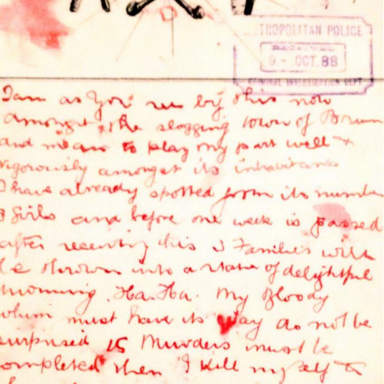 TROPOLITAN POLICE
RECEIVED
9 - OCT. 88
CRIMINAL INVESTIGATION DEPT
I am as you see by this now
amongst the slogging town of
and means to play my part well &
vigorously amongst its inhabitan
I have already spotted from its numbe
3 girls and before one week is passed
after receiving this 3 Families will
be thrown into a state of delightful
mourning. Ha. Ha. My Bloody
whim must have its way do not be
surprised 15 Murders must be
completed then I kill myself to